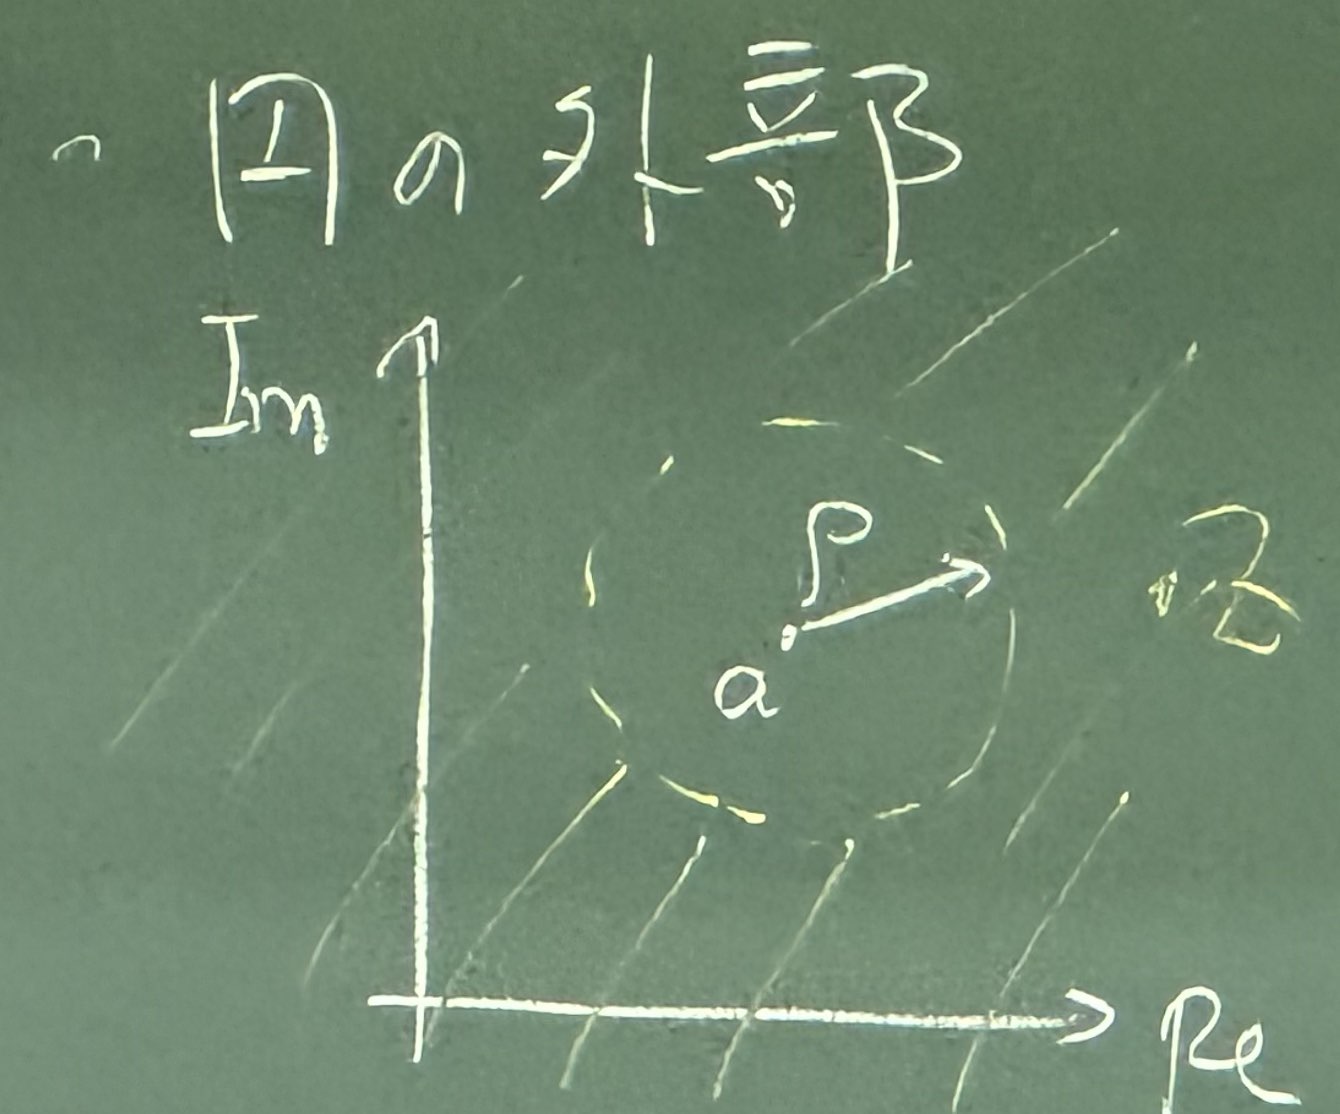 円の外部
Im
ρ
z
a
Re